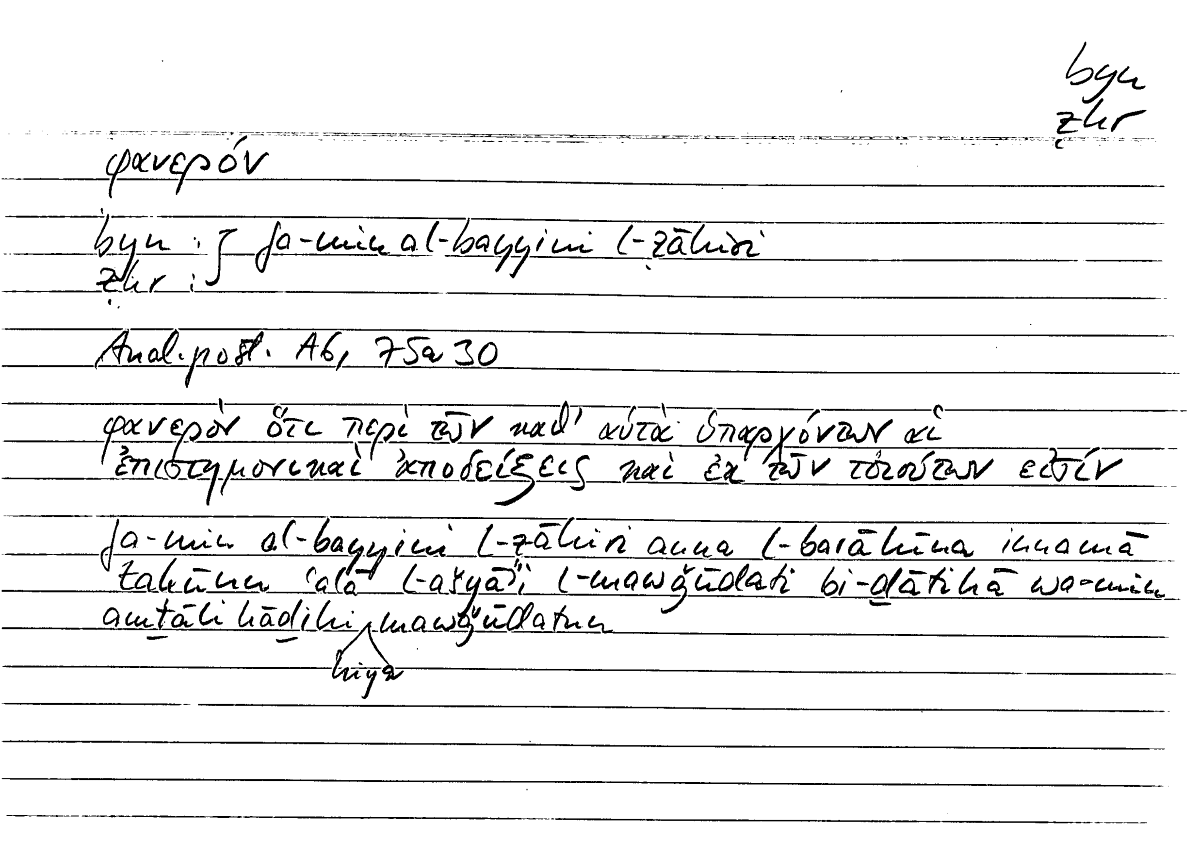 byn
ẓhr
φανερόν
byn : } fa-min al-bayyini l-ẓāhiri
ẓhr :
Anal. post. A6, 75a30
φανερὸν ὅτι περὶ τῶν καθ' αὑτὰ ὑπαρχόντων αἱ
ἐπιστημονικαὶ ἀποδείξεις καὶ ἐκ τῶν τοιούτων εἰσίν
fa-min al-bayyini l-ẓāhiri anna l-barāhīna innamā
takūnu ʿalā l-ašyāʾi l-mawǧūdati bi-ḏātihā wa-min
amṯāli hāḏihi mawǧūdatun
hiya